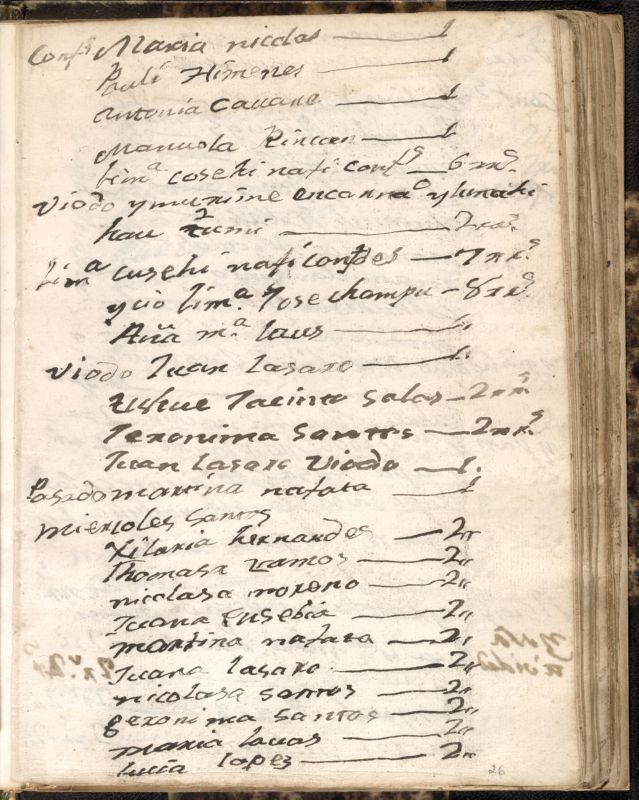 Confs Maria nicolas — 1
Pauli Himenes — 1
antonia Cauano — 1
Manuola Rincan — 1
lima cosehi nafi confs — 6 rrs.
Viodo y mu encarnao y
hau — 7 rrs.
lima cusehi nafi confdes — 7 rrs.
ycio lima. Jose champu — 8 rrs.
Aña ma. laus — 1.
viodo Juan lasaro — 1.
Jacinto salas — 2 rrs
Jeronima Santos — 2 rrs
Juan lasaro viodo — 1.
Pasado martina nafata — 1
miercoles santos
Xilaria hernandes — 2,,
Thomasa ramos — 2,,
nicolasa moreno — 2,,
Juana Eusebia — 2,,
martina nafata — 2,,
Juana lasaro — 2,,
nicolasa santos — 2,,
geronima santos — 2,,
maria lauas — 2,,
lucia lopes — 2,,
26